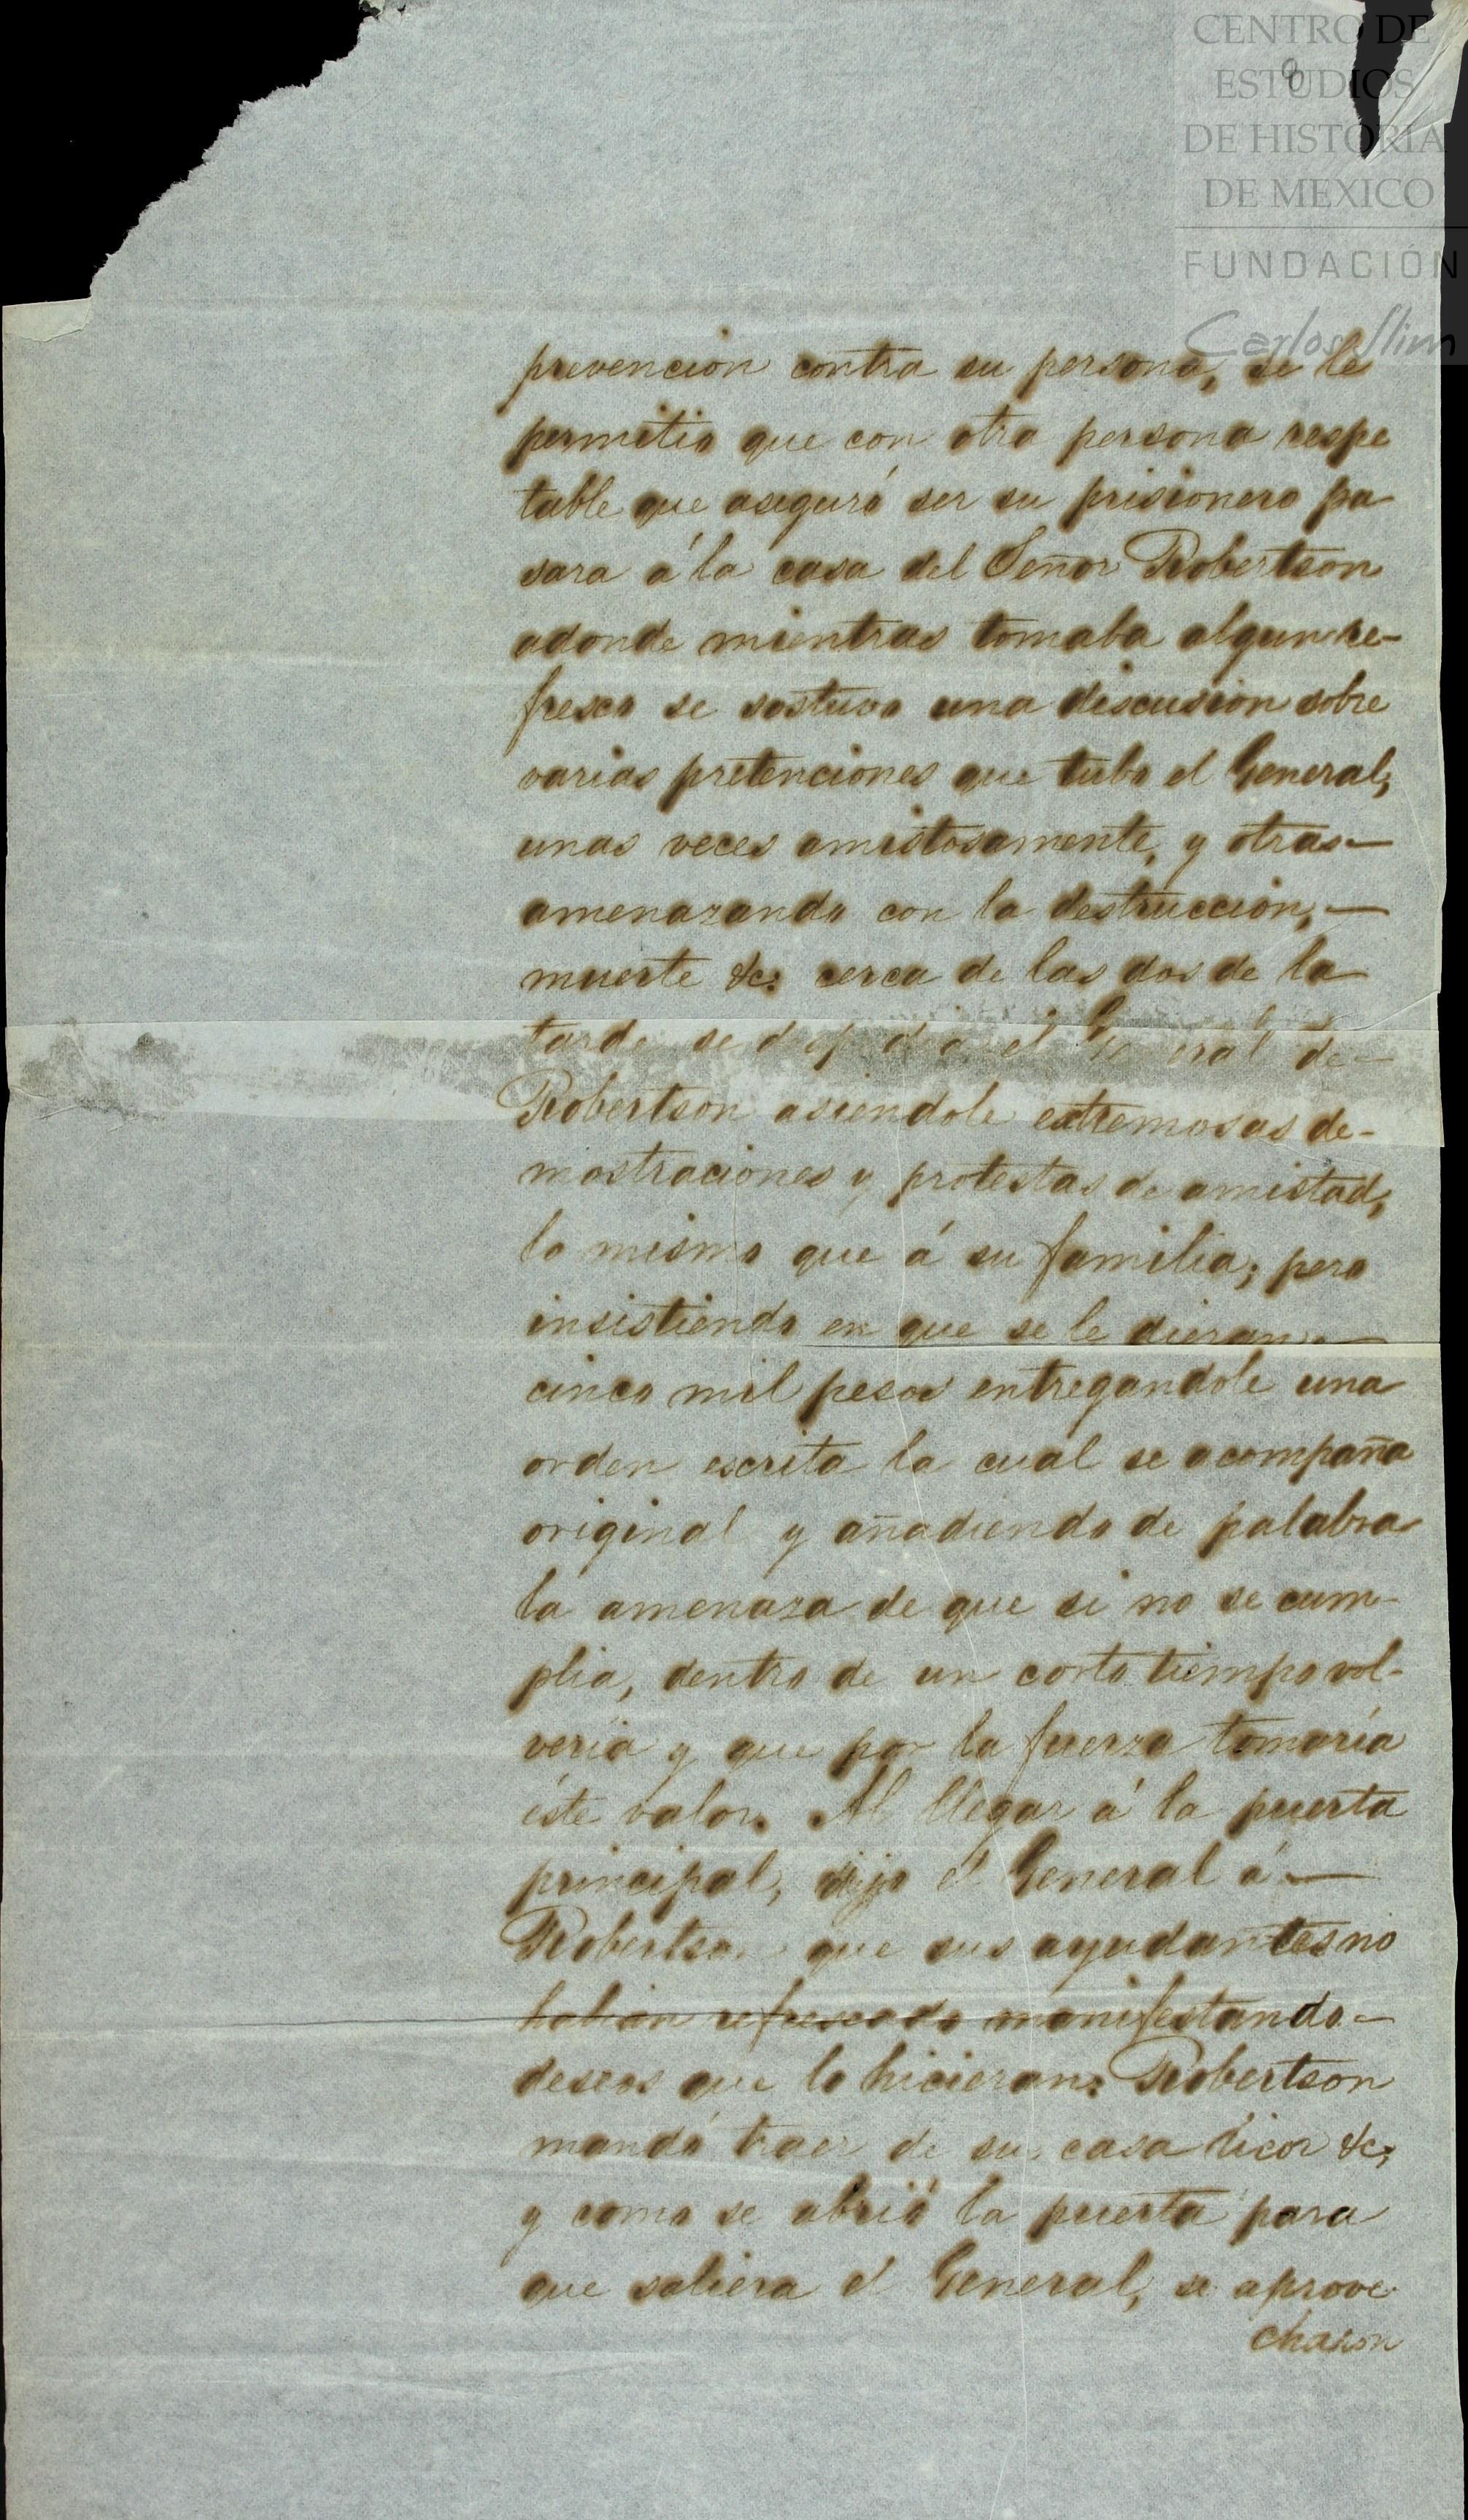 CENTRO DE
ESTUDIOS
DE HISTORIA
DE MEXICO
FUNDACIÓN
Carlos Slim
8
prevencion contra su persona, se le
permitio que con otra persona respe
table que aseguró ser su prisionero pa
sara á la casa del Señor Robertson
adonde mientras tomaba algun re-
fresco se sostuvo una discusion sobre
varias pretenciones que tubo el General,
unas veces amistosamente, y otras—
amenazando con la destruccion,—
muerte &c; cerca de las dos de la
tarde se d sp d o el G eral de—
Robertson asiendole extremosas de-
mostraciones y protestas de amistad,
lo mismo que á su familia; pero
insistiendo en que se le dieran—
cinco mil pesos entregandole una
orden escrita la cual se acompaña
original y añadiendo de palabra
la amenaza de que si no se cum-
plia, dentro de un corto tiempo vol-
veria y que por la fuerza tomaría
éste valor. Al llegar á la puerta
principal, dijo el General á—
Robertson que sus ayudantes no
habian refrescado manifestando—
deseos que lo hicieran; Robertson
mandó traer de su casa licor &c;
y como se abrió la puerta para
que saliera el General, se aprove
charon